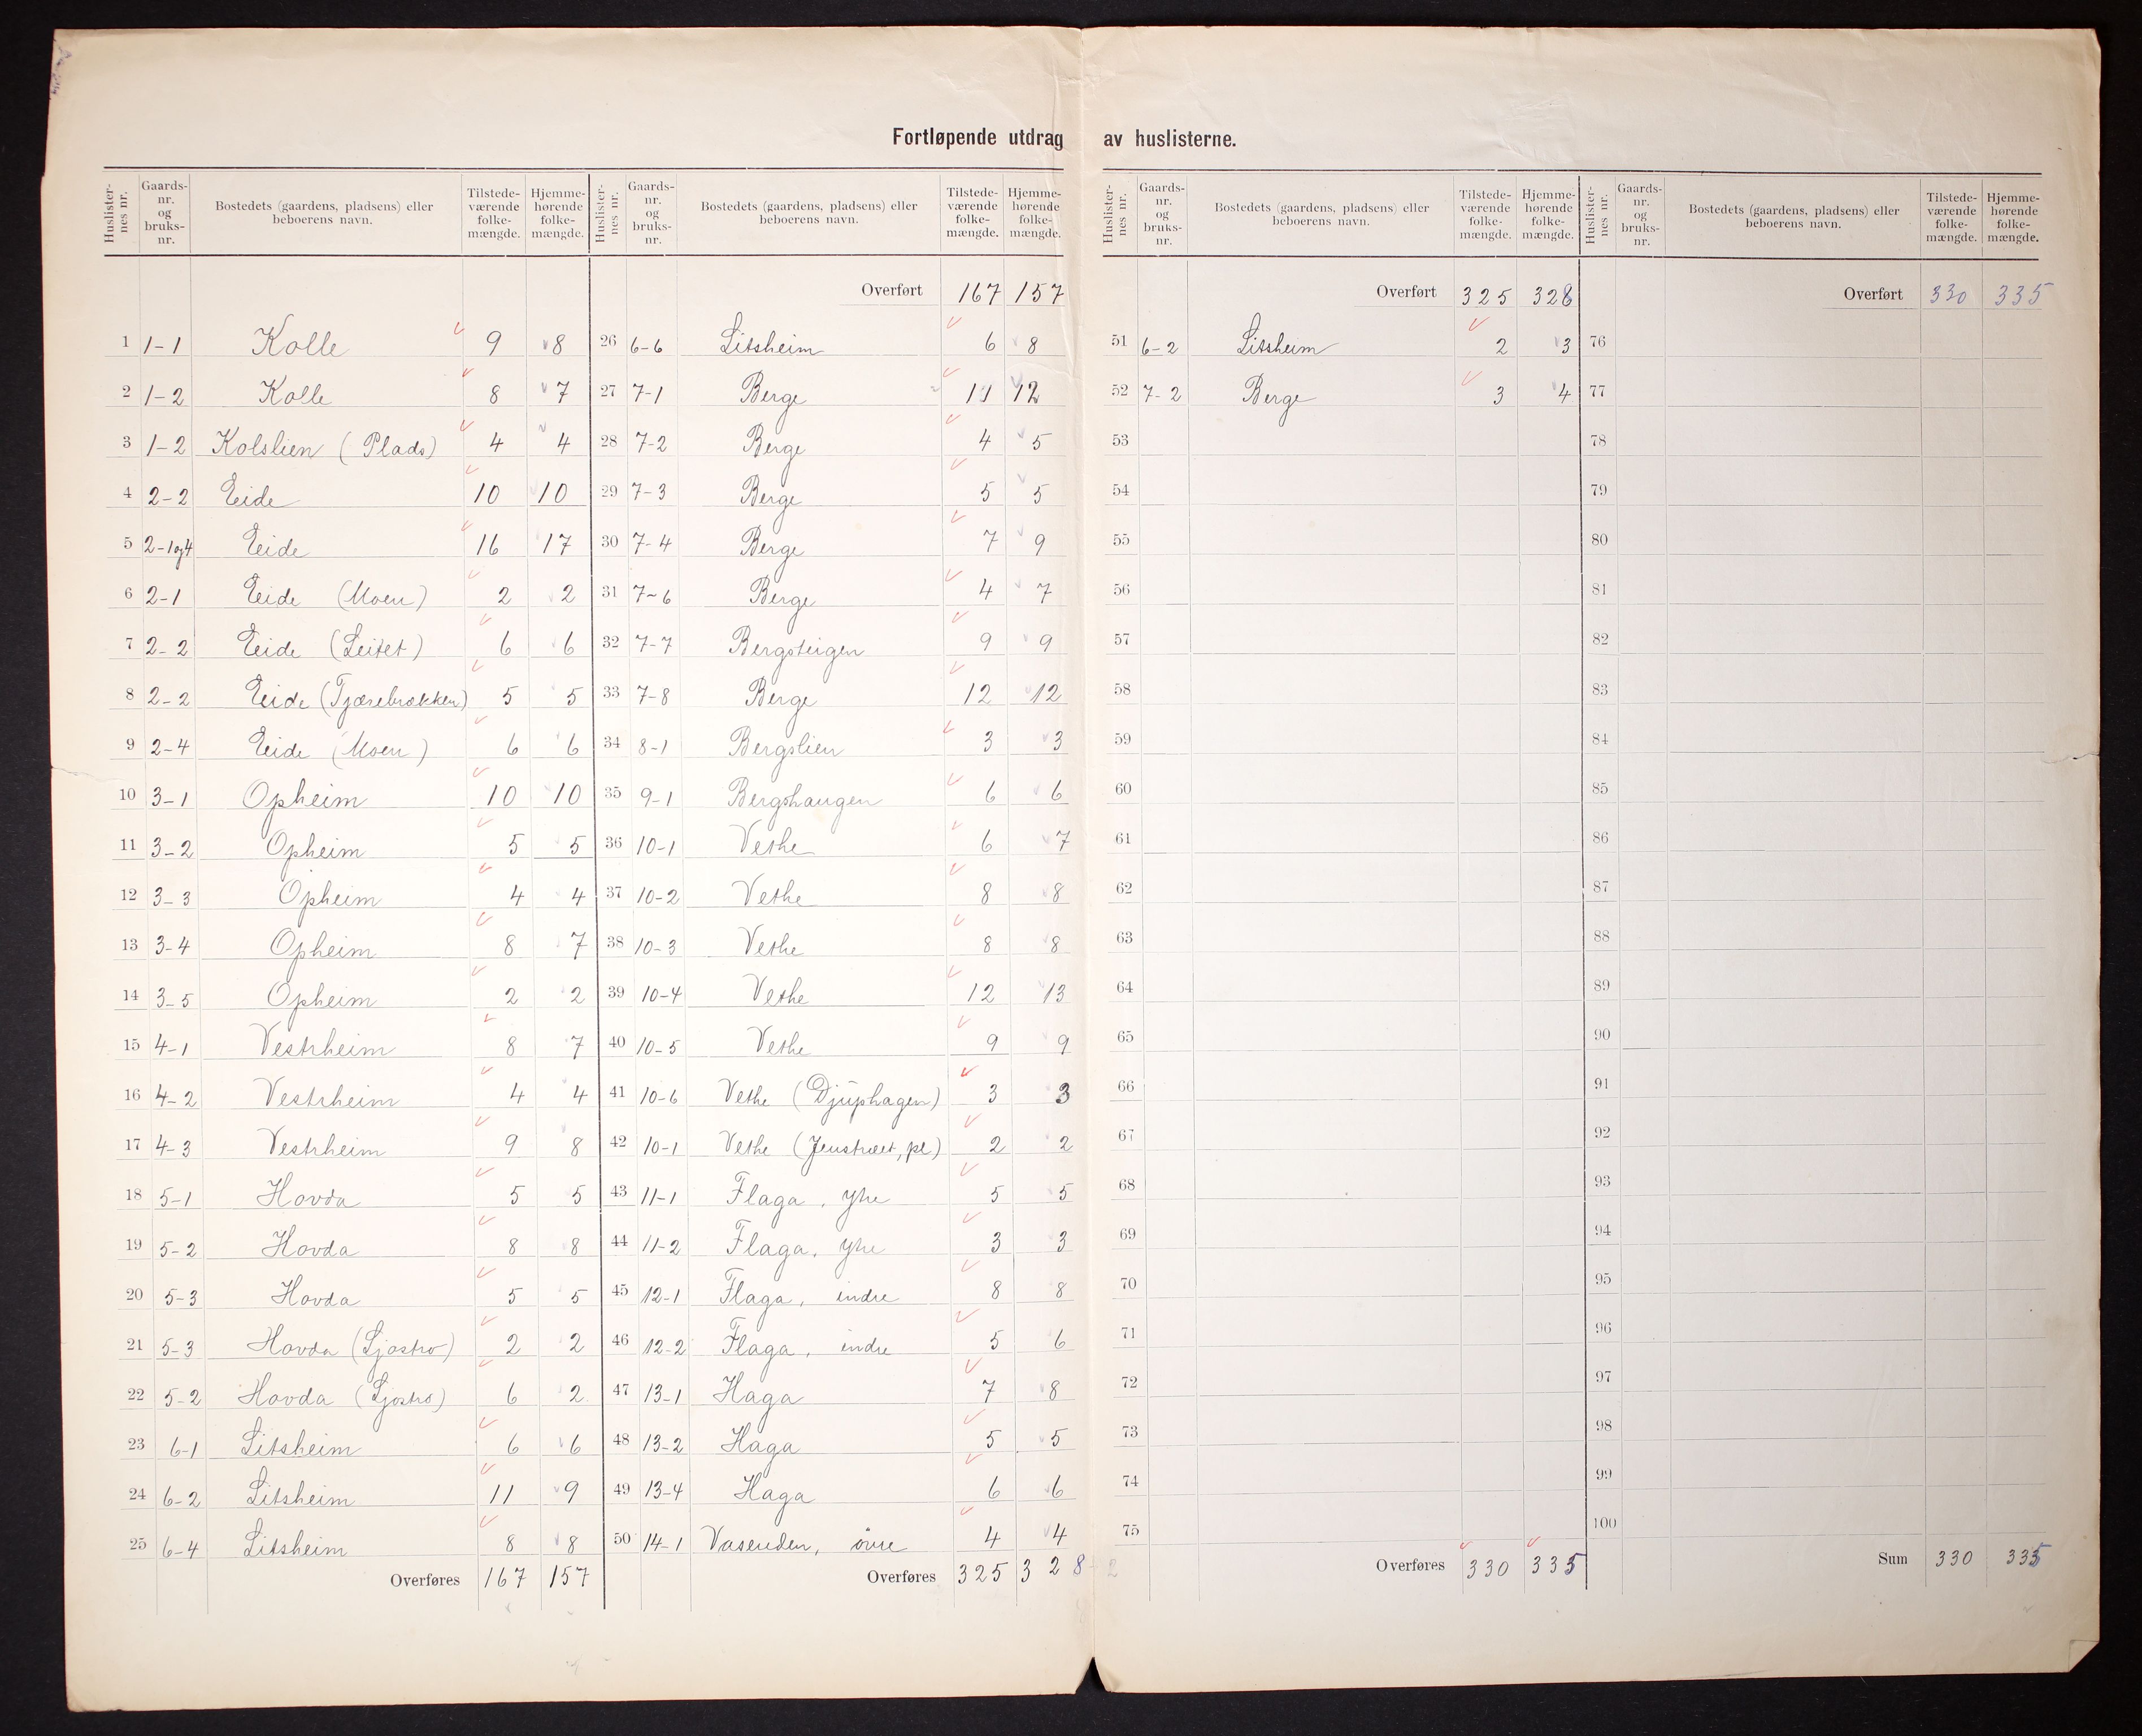 Fortløpende utdrag av huslisterne.
Huslister-nes nr. | Gaards-nr. og bruks-nr. | Bostedets (gaardens, pladsens) eller beboerens navn. | Tilstede-værende folke-mængde. | Hjemme-hørende folke-mængde.
1 1-1 Kolle 9 8
2 1-2 Kolle 8 7
3 1-2 Kolslien (Plads) 4 4
4 2-2 Eide 10 10
5 2-1og4 Eide 16 17
6 2-1 Eide (Moen) 2 2
7 2-2 Eide (Leitet) 6 6
8 2-2 Eide (Tjærebrækken) 5 5
9 2-4 Eide (Moen) 6 6
10 3-1 Opheim 10 10
11 3-2 Opheim 5 5
12 3-3 Opheim 4 4
13 3-4 Opheim 8 7
14 3-5 Opheim 2 2
15 4-1 Vestrheim 8 7
16 4-2 Vestrheim 4 4
17 4-3 Vestrheim 9 8
18 5-1 Hovda 5 5
19 5-2 Hovda 8 8
20 5-3 Hovda 5 5
21 5-3 Hovda (Ljostro) 2 2
22 5-2 Hovda (Ljostro) 6 2
23 6-1 Litsheim 6 6
24 6-2 Litsheim 11 9
25 6-4 Litsheim 8 8
Overføres 167 157
Huslister-nes nr. | Gaards-nr. og bruks-nr. | Bostedets (gaardens, pladsens) eller beboerens navn. | Tilstede-værende folke-mængde. | Hjemme-hørende folke-mængde.
Overført 167 157
26 6-6 Litsheim 6 8
27 7-1 Berge 11 12
28 7-2 Berge 4 5
29 7-3 Berge 5 5
30 7-4 Berge 7 9
31 7-6 Berge 4 7
32 7-7 Bergsteigen 9 9
33 7-8 Berge 12 12
34 8-1 Bergslien 3 3
35 9-1 Bergshaugen 6 6
36 10-1 Vethe 6 7
37 10-2 Vethe 8 8
38 10-3 Vethe 8 8
39 10-4 Vethe 12 13
40 10-5 Vethe 9 9
41 10-6 Vethe (Djuphagen) 3 3
42 10-1 Vethe (Jenstræet, pl) 2 2
43 11-1 Flaga, ytre 5 5
44 11-2 Flaga, ytre 3 3
45 12-1 Flaga, indre 8 8
46 12-2 Flaga, indre 5 6
47 13-1 Haga 7 8
48 13-2 Haga 5 5
49 13-4 Haga 6 6
50 14-1 Vasenden, övre 4 4
Overføres 325 328
Huslister-nes nr. | Gaards-nr. og bruks-nr. | Bostedets (gaardens, pladsens) eller beboerens navn. | Tilstede-værende folke-mængde. | Hjemme-hørende folke-mængde.
Overført 325 328
51 6-2 Litsheim 2 3
52 7-2 Berge 3 4
53
54
55
56
57
58
59
60
61
62
63
64
65
66
67
68
69
70
71
72
73
74
75
Overføres 330 335
Huslister-nes nr. | Gaards-nr. og bruks-nr. | Bostedets (gaardens, pladsens) eller beboerens navn. | Tilstede-værende folke-mængde. | Hjemme-hørende folke-mængde.
Overført 330 335
76
77
78
79
80
81
82
83
84
85
86
87
88
89
90
91
92
93
94
95
96
97
98
99
100
Sum 330 335